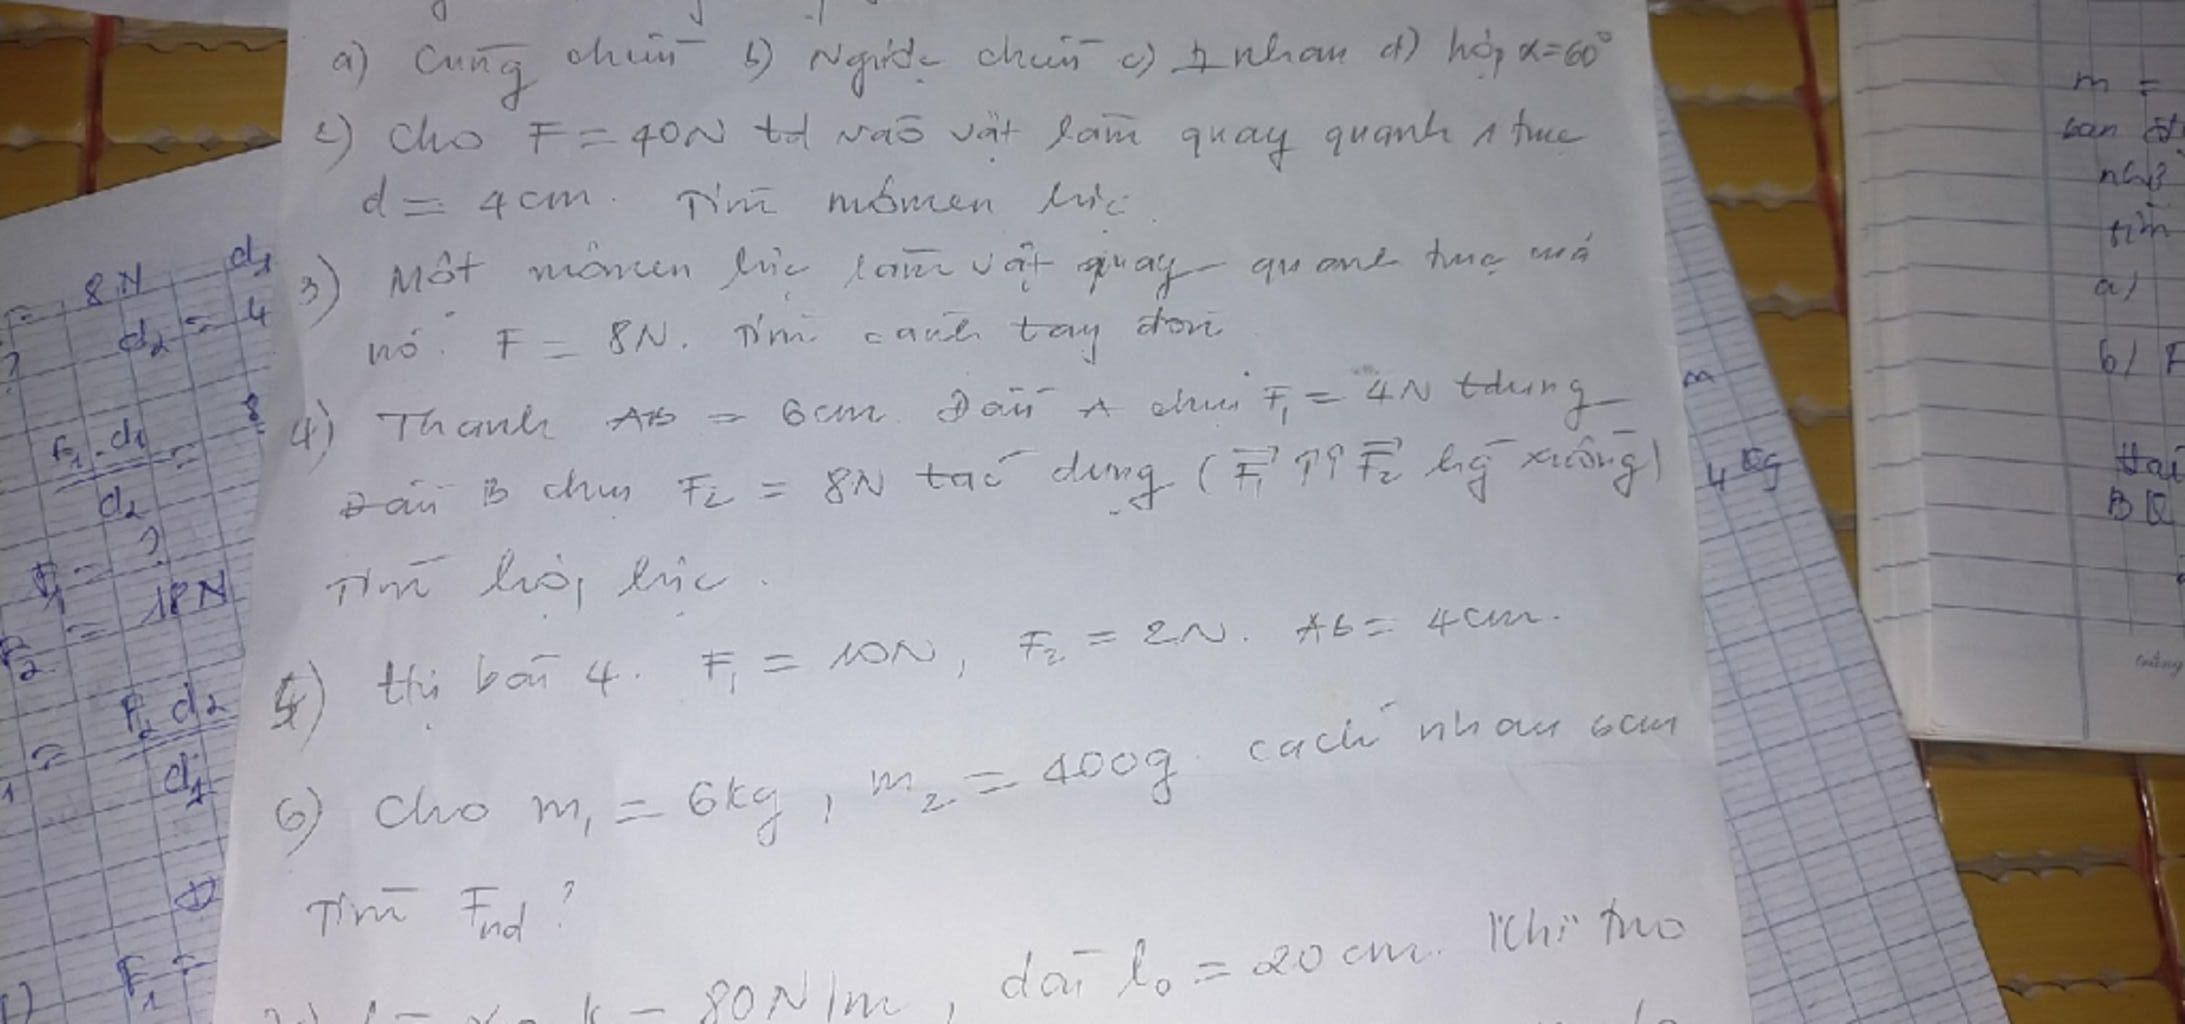 a) Cùng chiều b) Ngược chiều c) ⊥ nhau d) hợp α=60°
2) Cho F = 40N td vào vật làm quay quanh 1 trục
d = 4cm. Tìm mômen lực.
3) Một mômen lực làm vật quay quanh trục mà
nó. F = 8N. Tìm cánh tay đòn
4) Thanh AB = 6cm. Đầu A chịu F₁ = 4N tdụng
Đầu B chịu F₂ = 8N tác dụng (F₁ ↑↑ F₂ hg xuống)
Tìm hợp lực.
5) ttự bài 4. F₁ = 10N, F₂ = 2N. AB = 4cm.
6) Cho m₁ = 6kg, m₂ = 400g. cách nhau 6cm
Tìm Fhd?
k = 80N/m, dài l₀ = 20cm. Khi treo
= 8N d₁
d₂ = 4
F₁.d₁
d₂
= 8
F₁ = ?
F₂ = 18N
= F₂ d₂
d₁
F₁ =
m
4 kg
m =
ban
tìm
a)
b) F